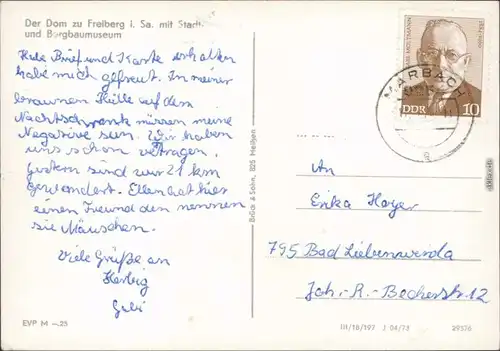 Der Dom zu Freiberg i. Sa. mit Stadt-
und Bergbaumuseum
Habe Brief und Karte erhalten
habe mich gefreut. In meiner
braunen Hülle auf dem
Nachtschrank müssen meine
Negative sein. Wir haben
uns schon vertragen.
Gestern sind wir 21 km
gewandert. Ellen hat hier
einen Freund den nennen
sie Mäuschen.
Viele Grüße an
Herbig
Gabi
EVP M –.25
Brück & Sohn, 825 Meißen
MARBACH
DDR 10
An
Erika Hoyer
795 Bad Liebenwerda
Joh.-R.-Becherstr. 12
III/18/197 J 04/73 29376